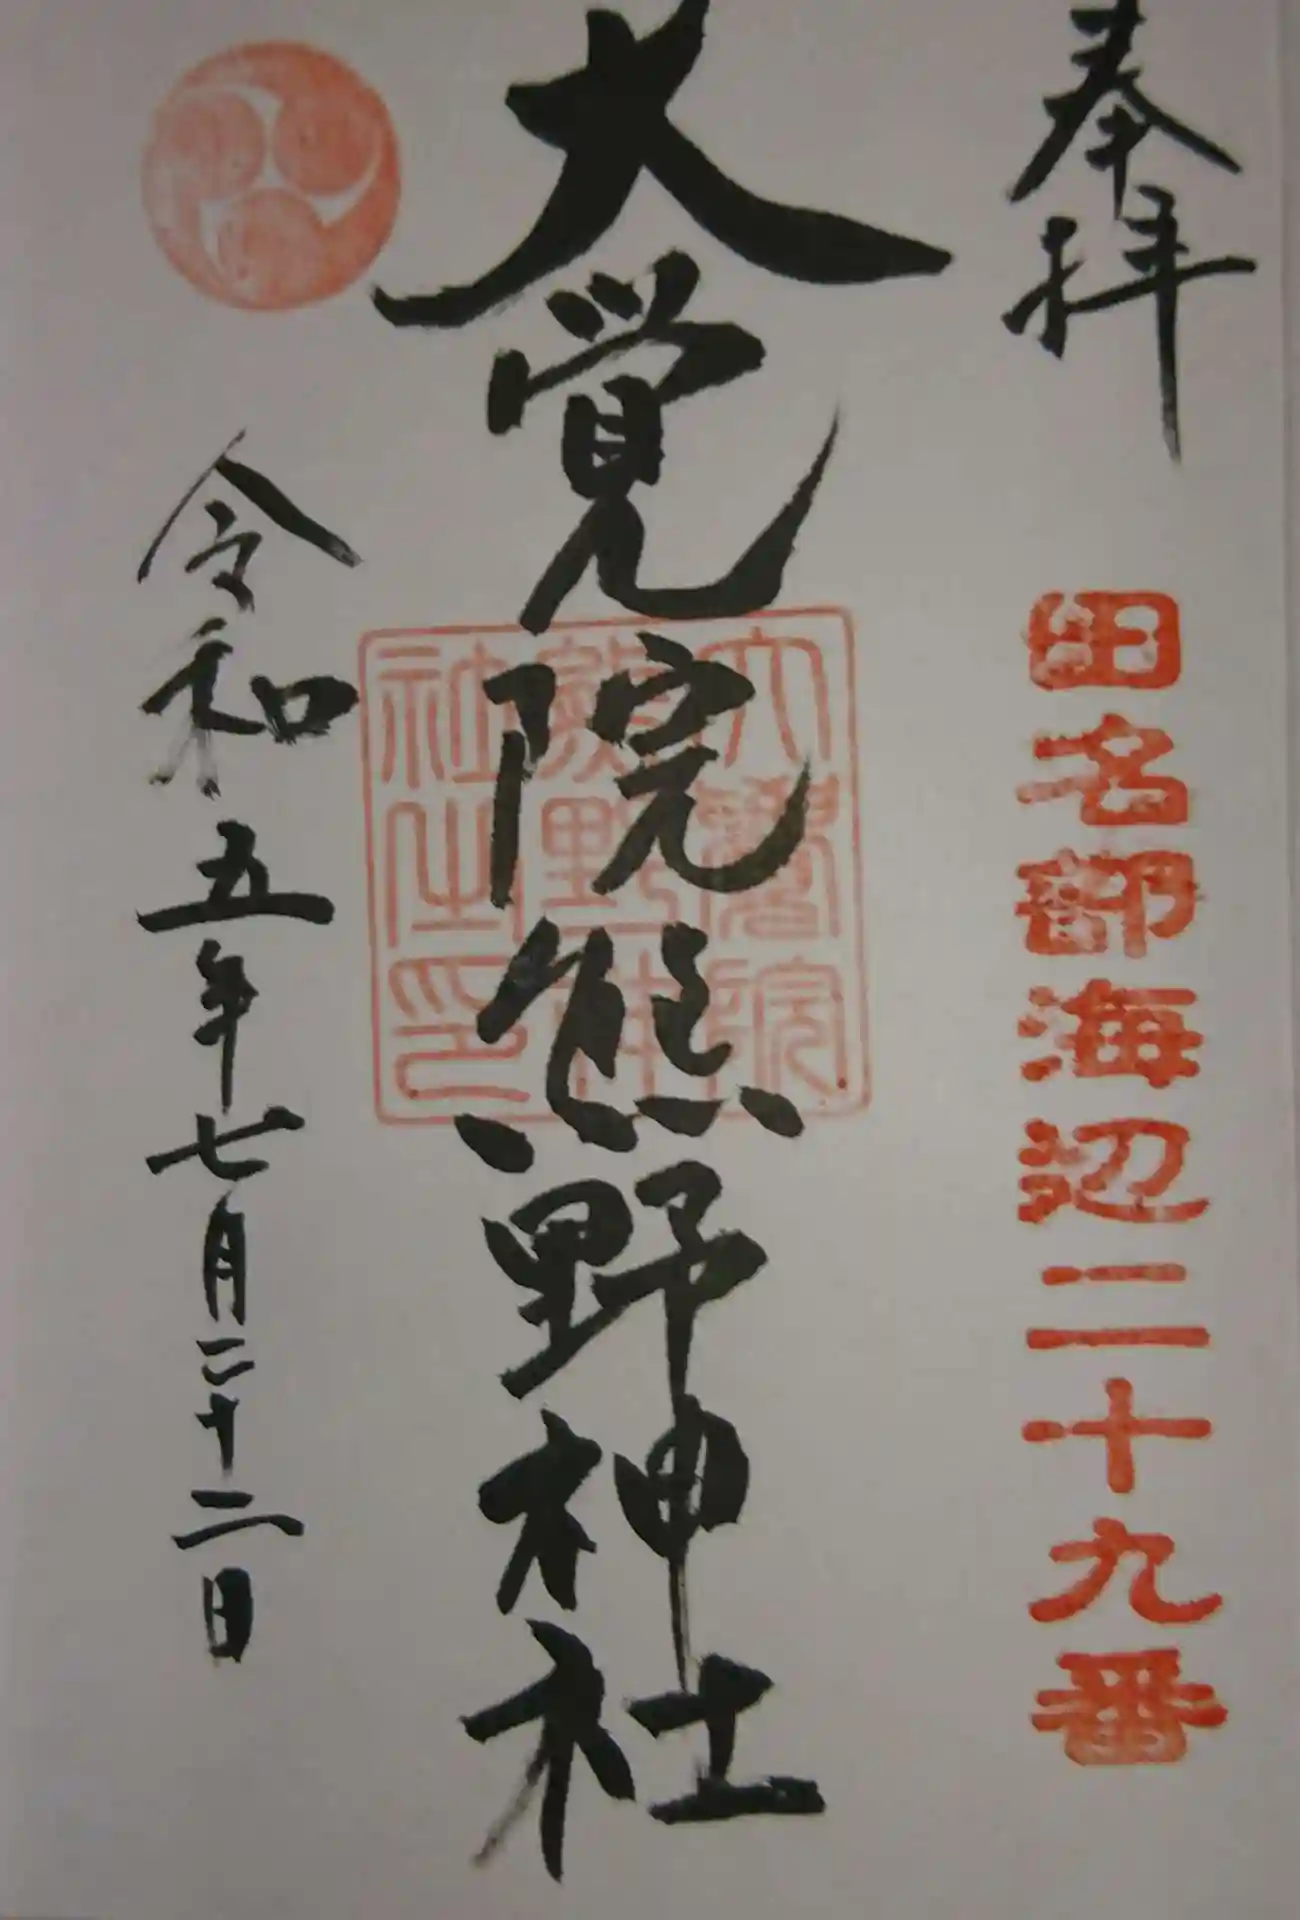 奉拝
田名部海辺三十九番
大覚院熊野神社
大覺院熊野神社之印
令和五年七月二十二日